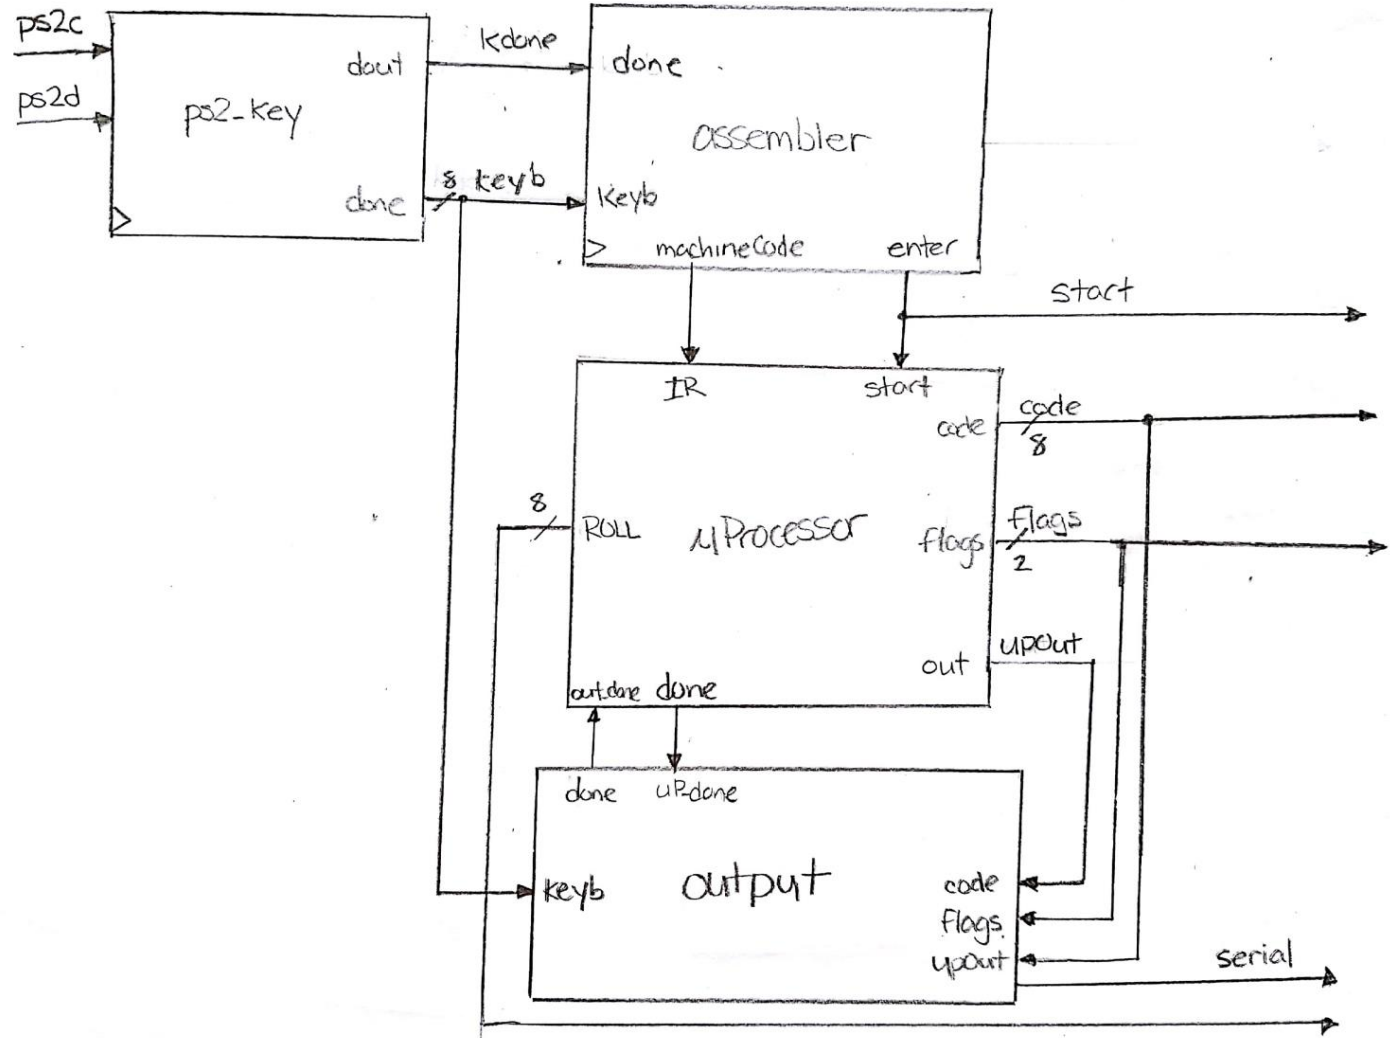 ps2c
ps2d
ps2-key
dout
done
Kdone
8 keyb
done
assembler
Keyb
machineCode
enter
start
IR
start
code
code
8
8
ROLL
μProcessor
flags
flags
2
out
upOut
out-done
done
done
uP-done
keyb
output
code
flags
upOut
serial